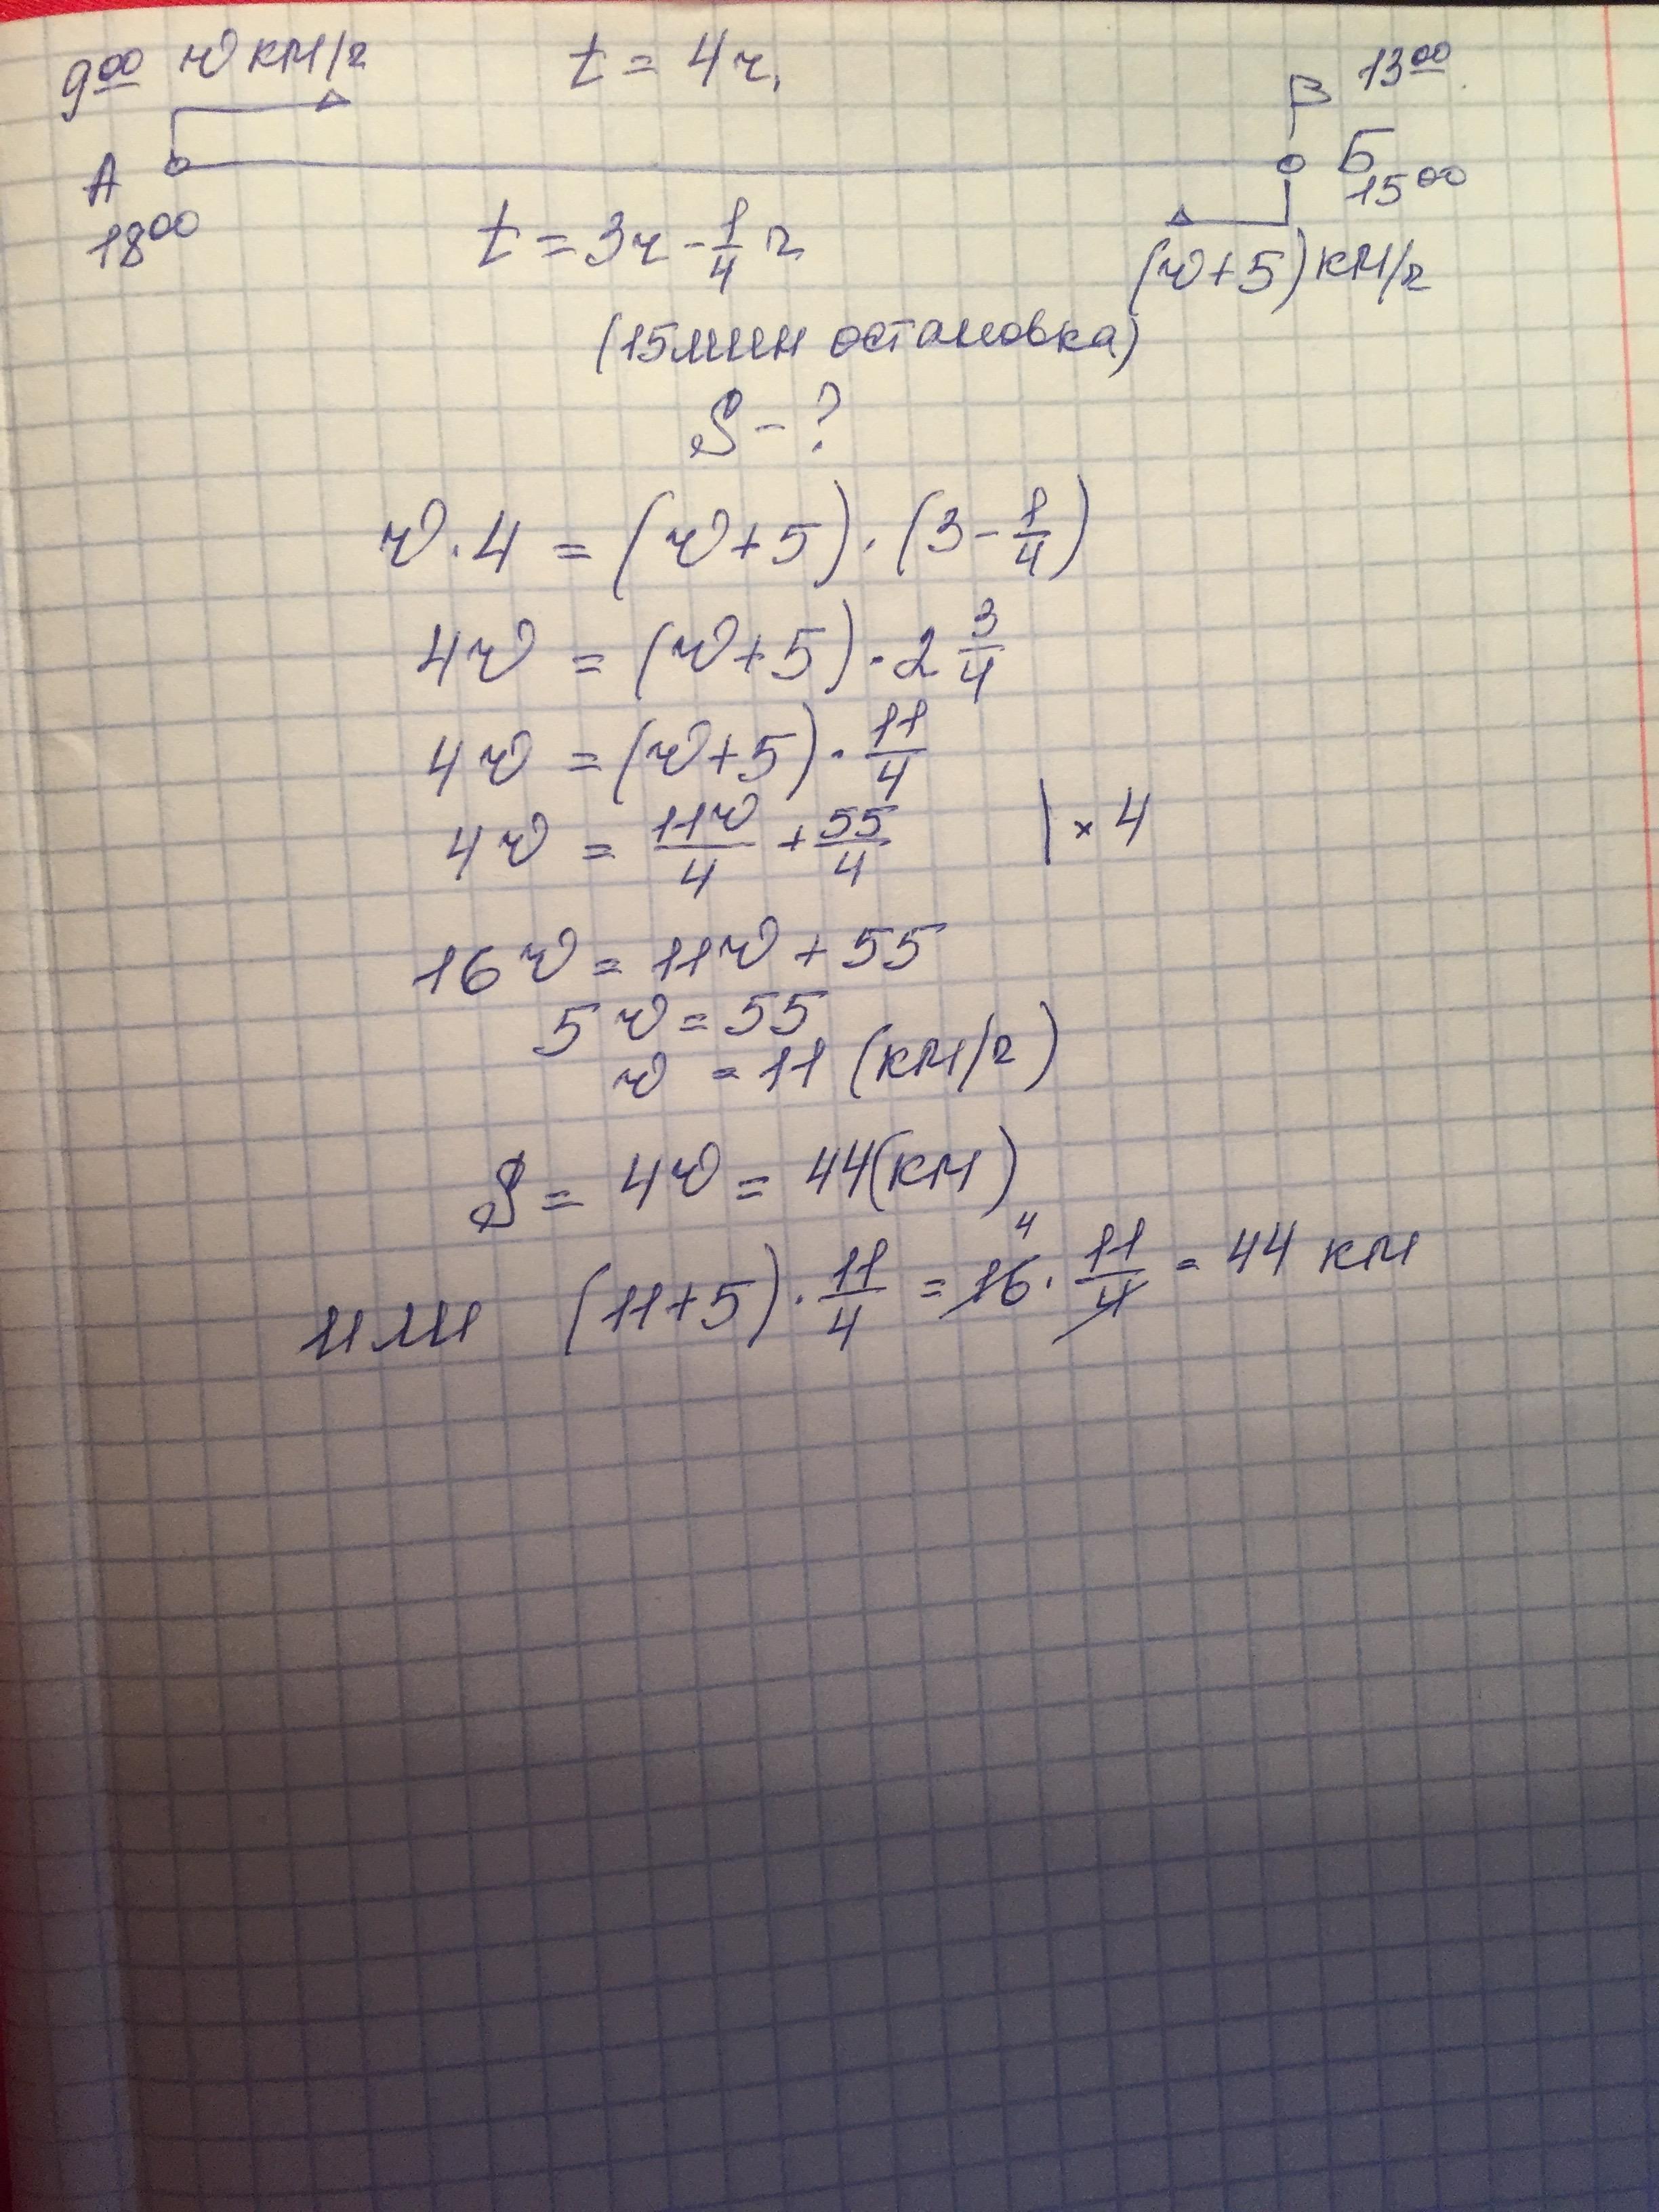 9⁰⁰ v км/ч t = 4ч. 13⁰⁰
А Б
18⁰⁰ 15⁰⁰
t = 3ч - 1/4 ч (v+5) км/ч
(15 мин остановка)
S - ?
v · 4 = (v+5) · (3 - 1/4)
4v = (v+5) · 2 3/4
4v = (v+5) · 11/4
4v = 11v/4 + 55/4 | × 4
16v = 11v + 55
5v = 55
v = 11 (км/ч)
S = 4v = 44 (км)
или (11+5) · 11/4 = 16⁴ · 11/4 = 44 км